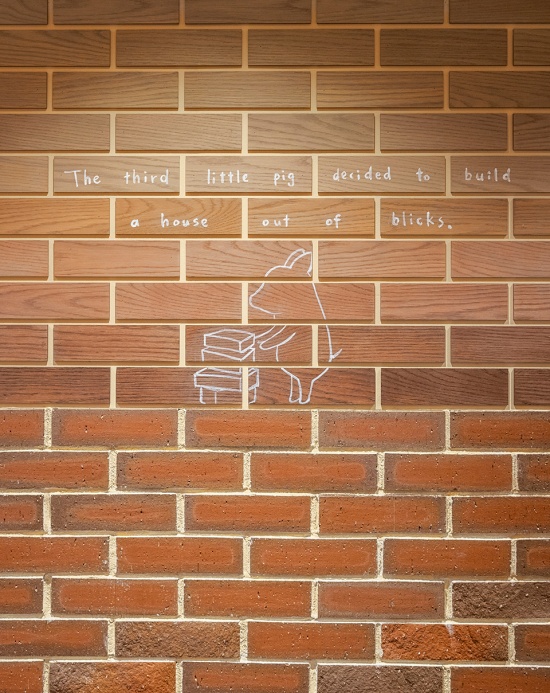 The third little pig decided to build
a house out of blicks.